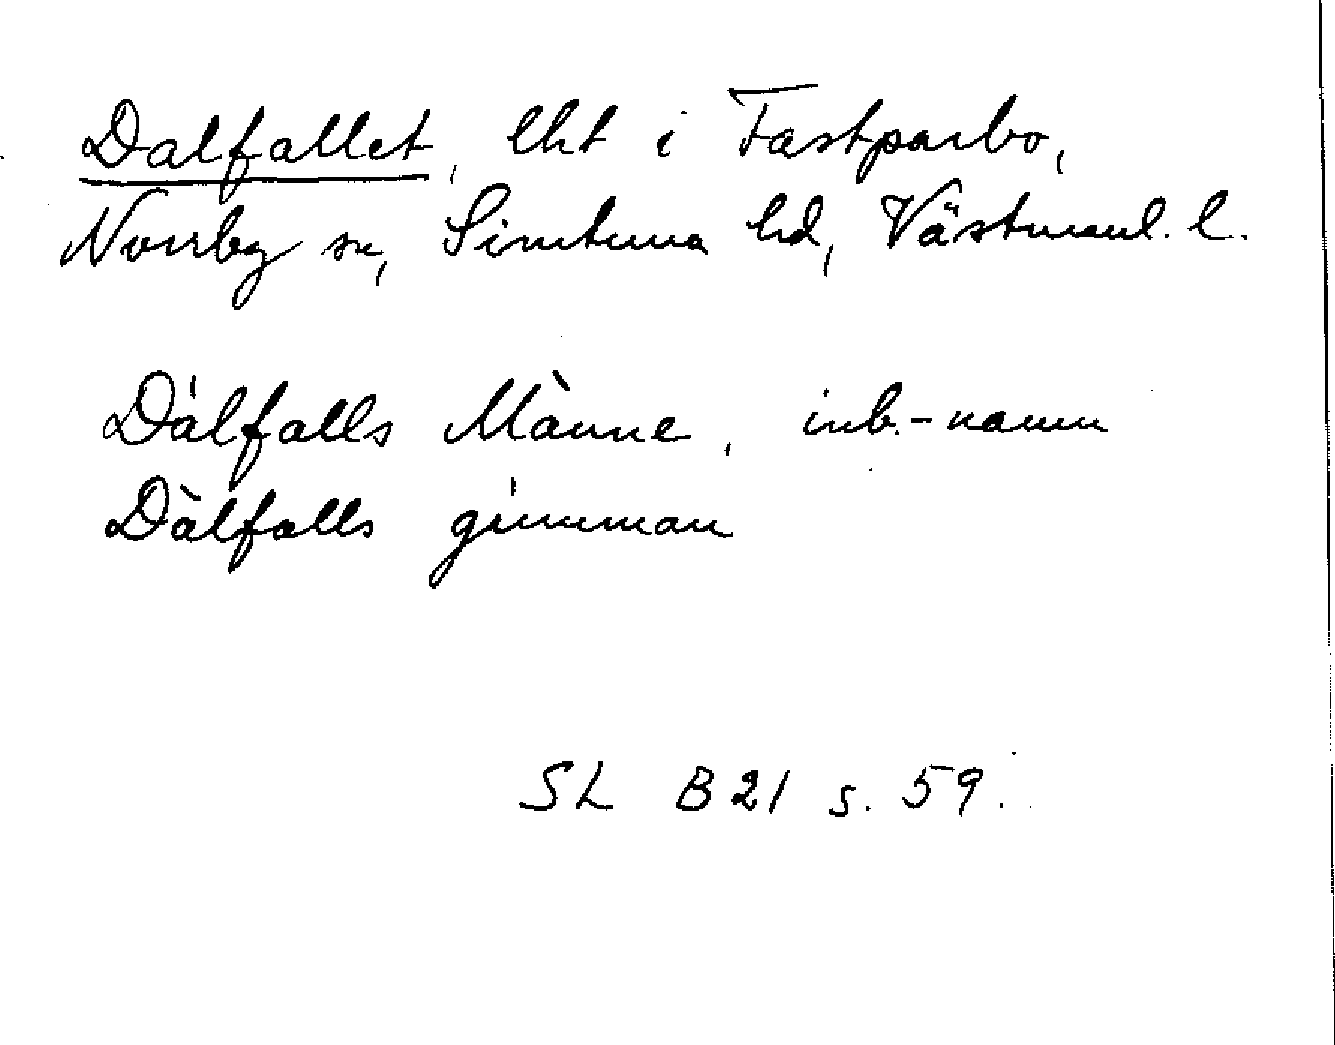 Dalfallet, lht i Fastparbo,
Norrby sn, Simtuna hd, Västmanl. l.
Dálfalls Mànne, inb.-namn
Dàlfalls gúmman
SL B21 s. 59.